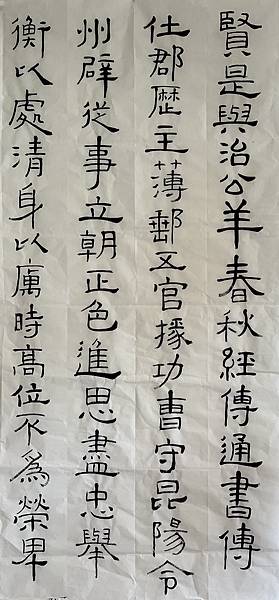 賢是與治公羊春秋經傳通書傳
仕郡歷主薄郵五官掾功曹守昆陽令
州辟從事立朝正色進思盡忠舉
衡以處清身以厲時高位不為榮卑